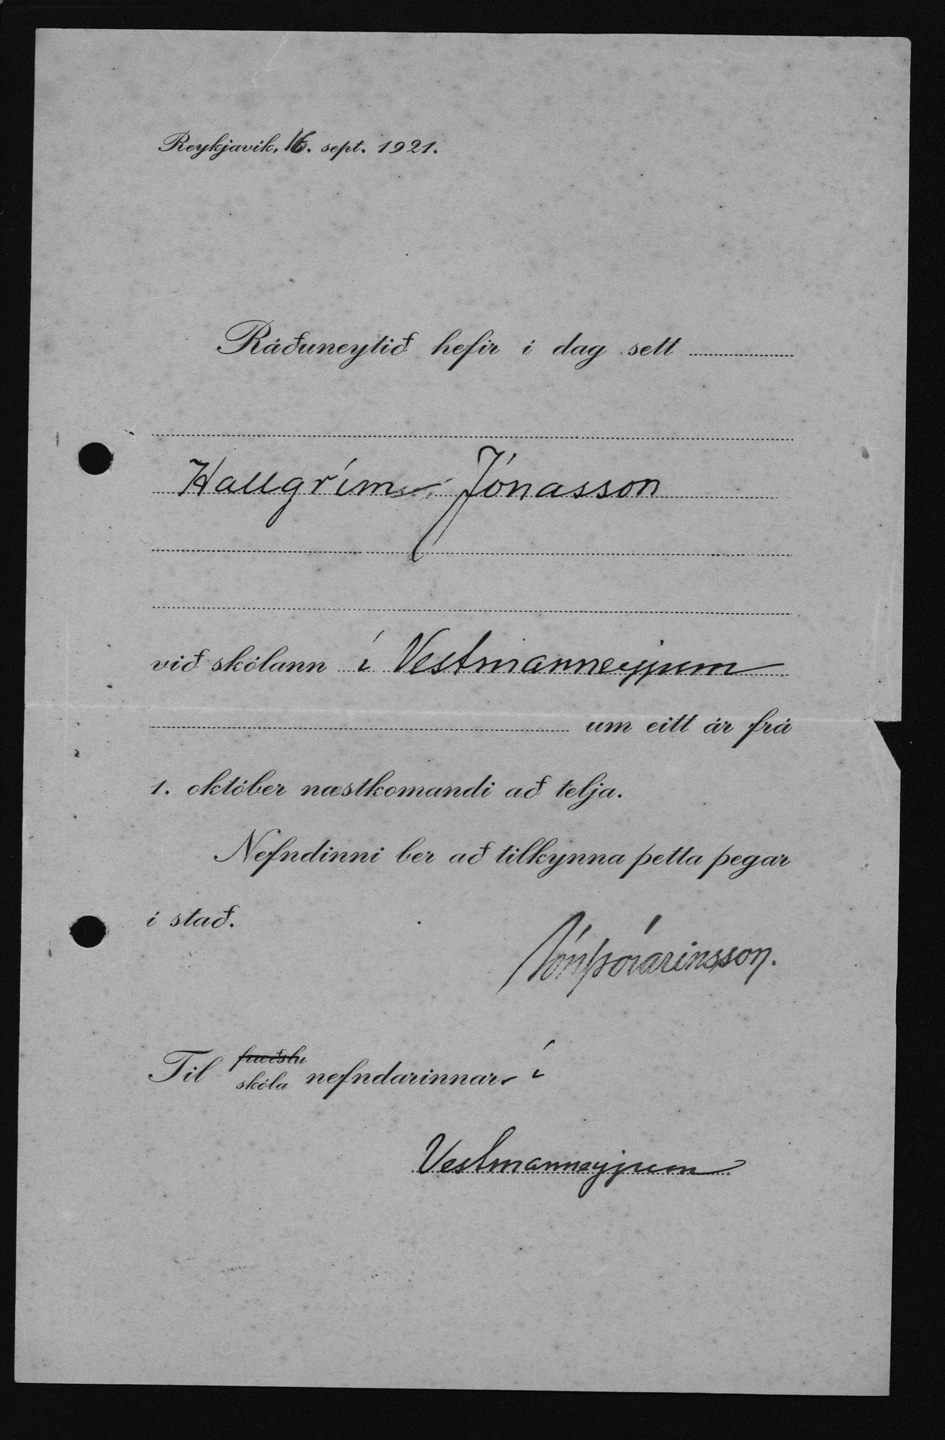 Reykjavik, 16. sept. 1921.
Ráðuneytið hefir í dag sett
Hallgrím Jónasson
við skólann í Vestmanneyjum
um eitt ár frá
1. október næstkomandi að telja.
Nefndinni ber að tilkynna þetta þegar
í stað.
Jón Þórarinsson.
Til fræðslu
skóla nefndarinnar í
Vestmanneyjum